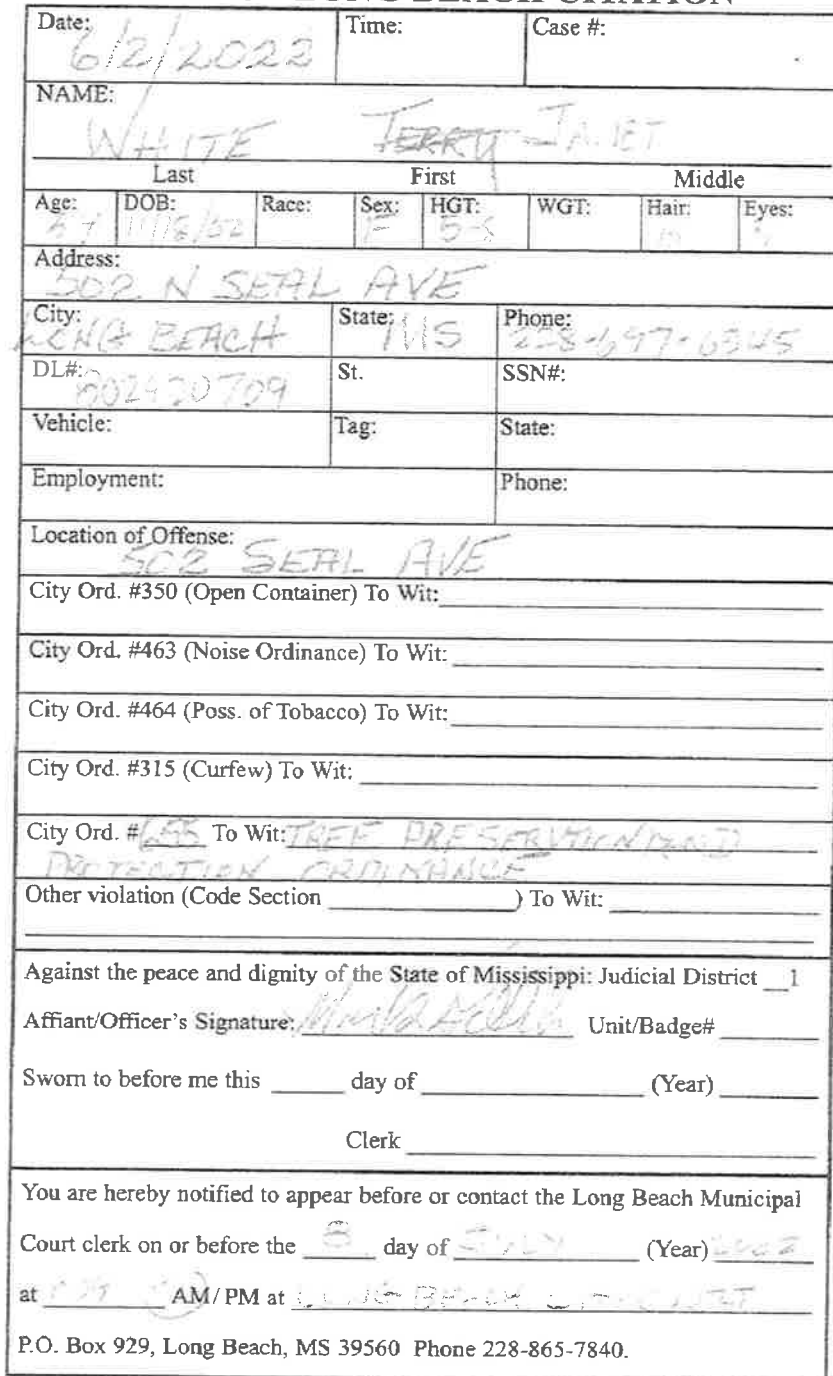 LONG BEACH CITATION
Date: 6/2/2022 Time: Case #:
NAME:
WHITE TERRY JANET
Last First Middle
Age: DOB: Race: Sex: F HGT: 5-8 WGT: Hair: Eyes:
Address:
502 N SEAL AVE
City: LONG BEACH State: MS Phone:
DL#: St. SSN#:
Vehicle: Tag: State:
Employment: Phone:
Location of Offense:
502 SEAL AVE
City Ord. #350 (Open Container) To Wit:
City Ord. #463 (Noise Ordinance) To Wit:
City Ord. #464 (Poss. of Tobacco) To Wit:
City Ord. #315 (Curfew) To Wit:
City Ord. # To Wit: TREE PRESERVATION AND
PROTECTION ORDINANCE
Other violation (Code Section ) To Wit:
Against the peace and dignity of the State of Mississippi: Judicial District 1
Affiant/Officer's Signature: Unit/Badge#
Sworn to before me this day of (Year)
Clerk
You are hereby notified to appear before or contact the Long Beach Municipal
Court clerk on or before the 8 day of JULY (Year) 2022
at AM/PM at LONG BEACH
P.O. Box 929, Long Beach, MS 39560 Phone 228-865-7840.